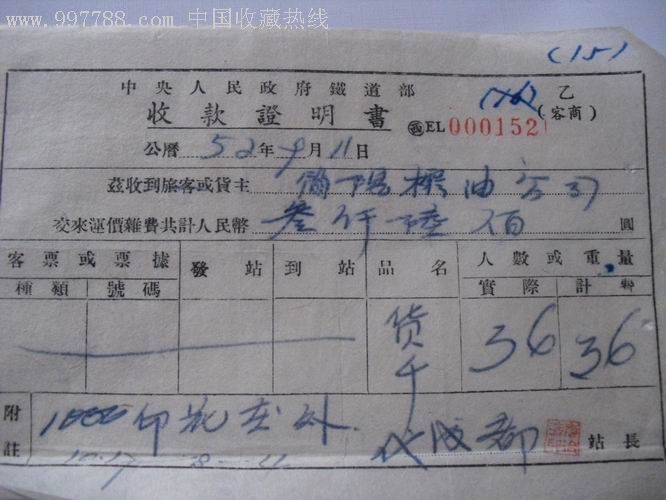 www.997788.com 中国收藏热线
(15)
中央人民政府鐵道部
乙
收款證明書
(客商)
EL 000152
公曆 52年9月11日
茲收到旅客或貨主 簡陽 油公司
交來運價雜費共計人民幣 叁仟陸佰 圓
客票或票據 發站 到站 品名 人數或重量
種類 號碼 實際 計費
货 36 36
附註 印花在外
代成都 站長